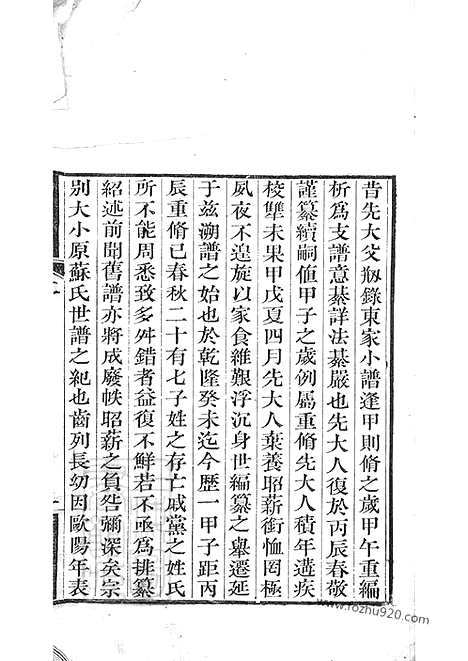 昔先大父刱錄東家小譜逢甲則脩之歲甲午重編
析爲支譜意綦詳法綦嚴也先大人復於丙辰春敬
謹纂續嗣値甲子之歲例屬重脩先大人積年遘疾
校讐未果甲戊夏四月先大人棄養昭薪銜恤罔極
夙夜不遑旋以家食維艱浮沉身世編纂之舉遷延
于茲溯譜之始也於乾隆癸未迄今歷一甲子距丙
辰重脩已春秋二十有七子姓之存亡戚黨之姓氏
所不能周悉致多舛錯者益復不鮮若不亟爲排纂
紹述前聞舊譜亦將成廢帙昭薪之負咎彌深矣宗
別大小原蘇氏世譜之紀也齒列長幼因歐陽年表
www.fozhu920.com